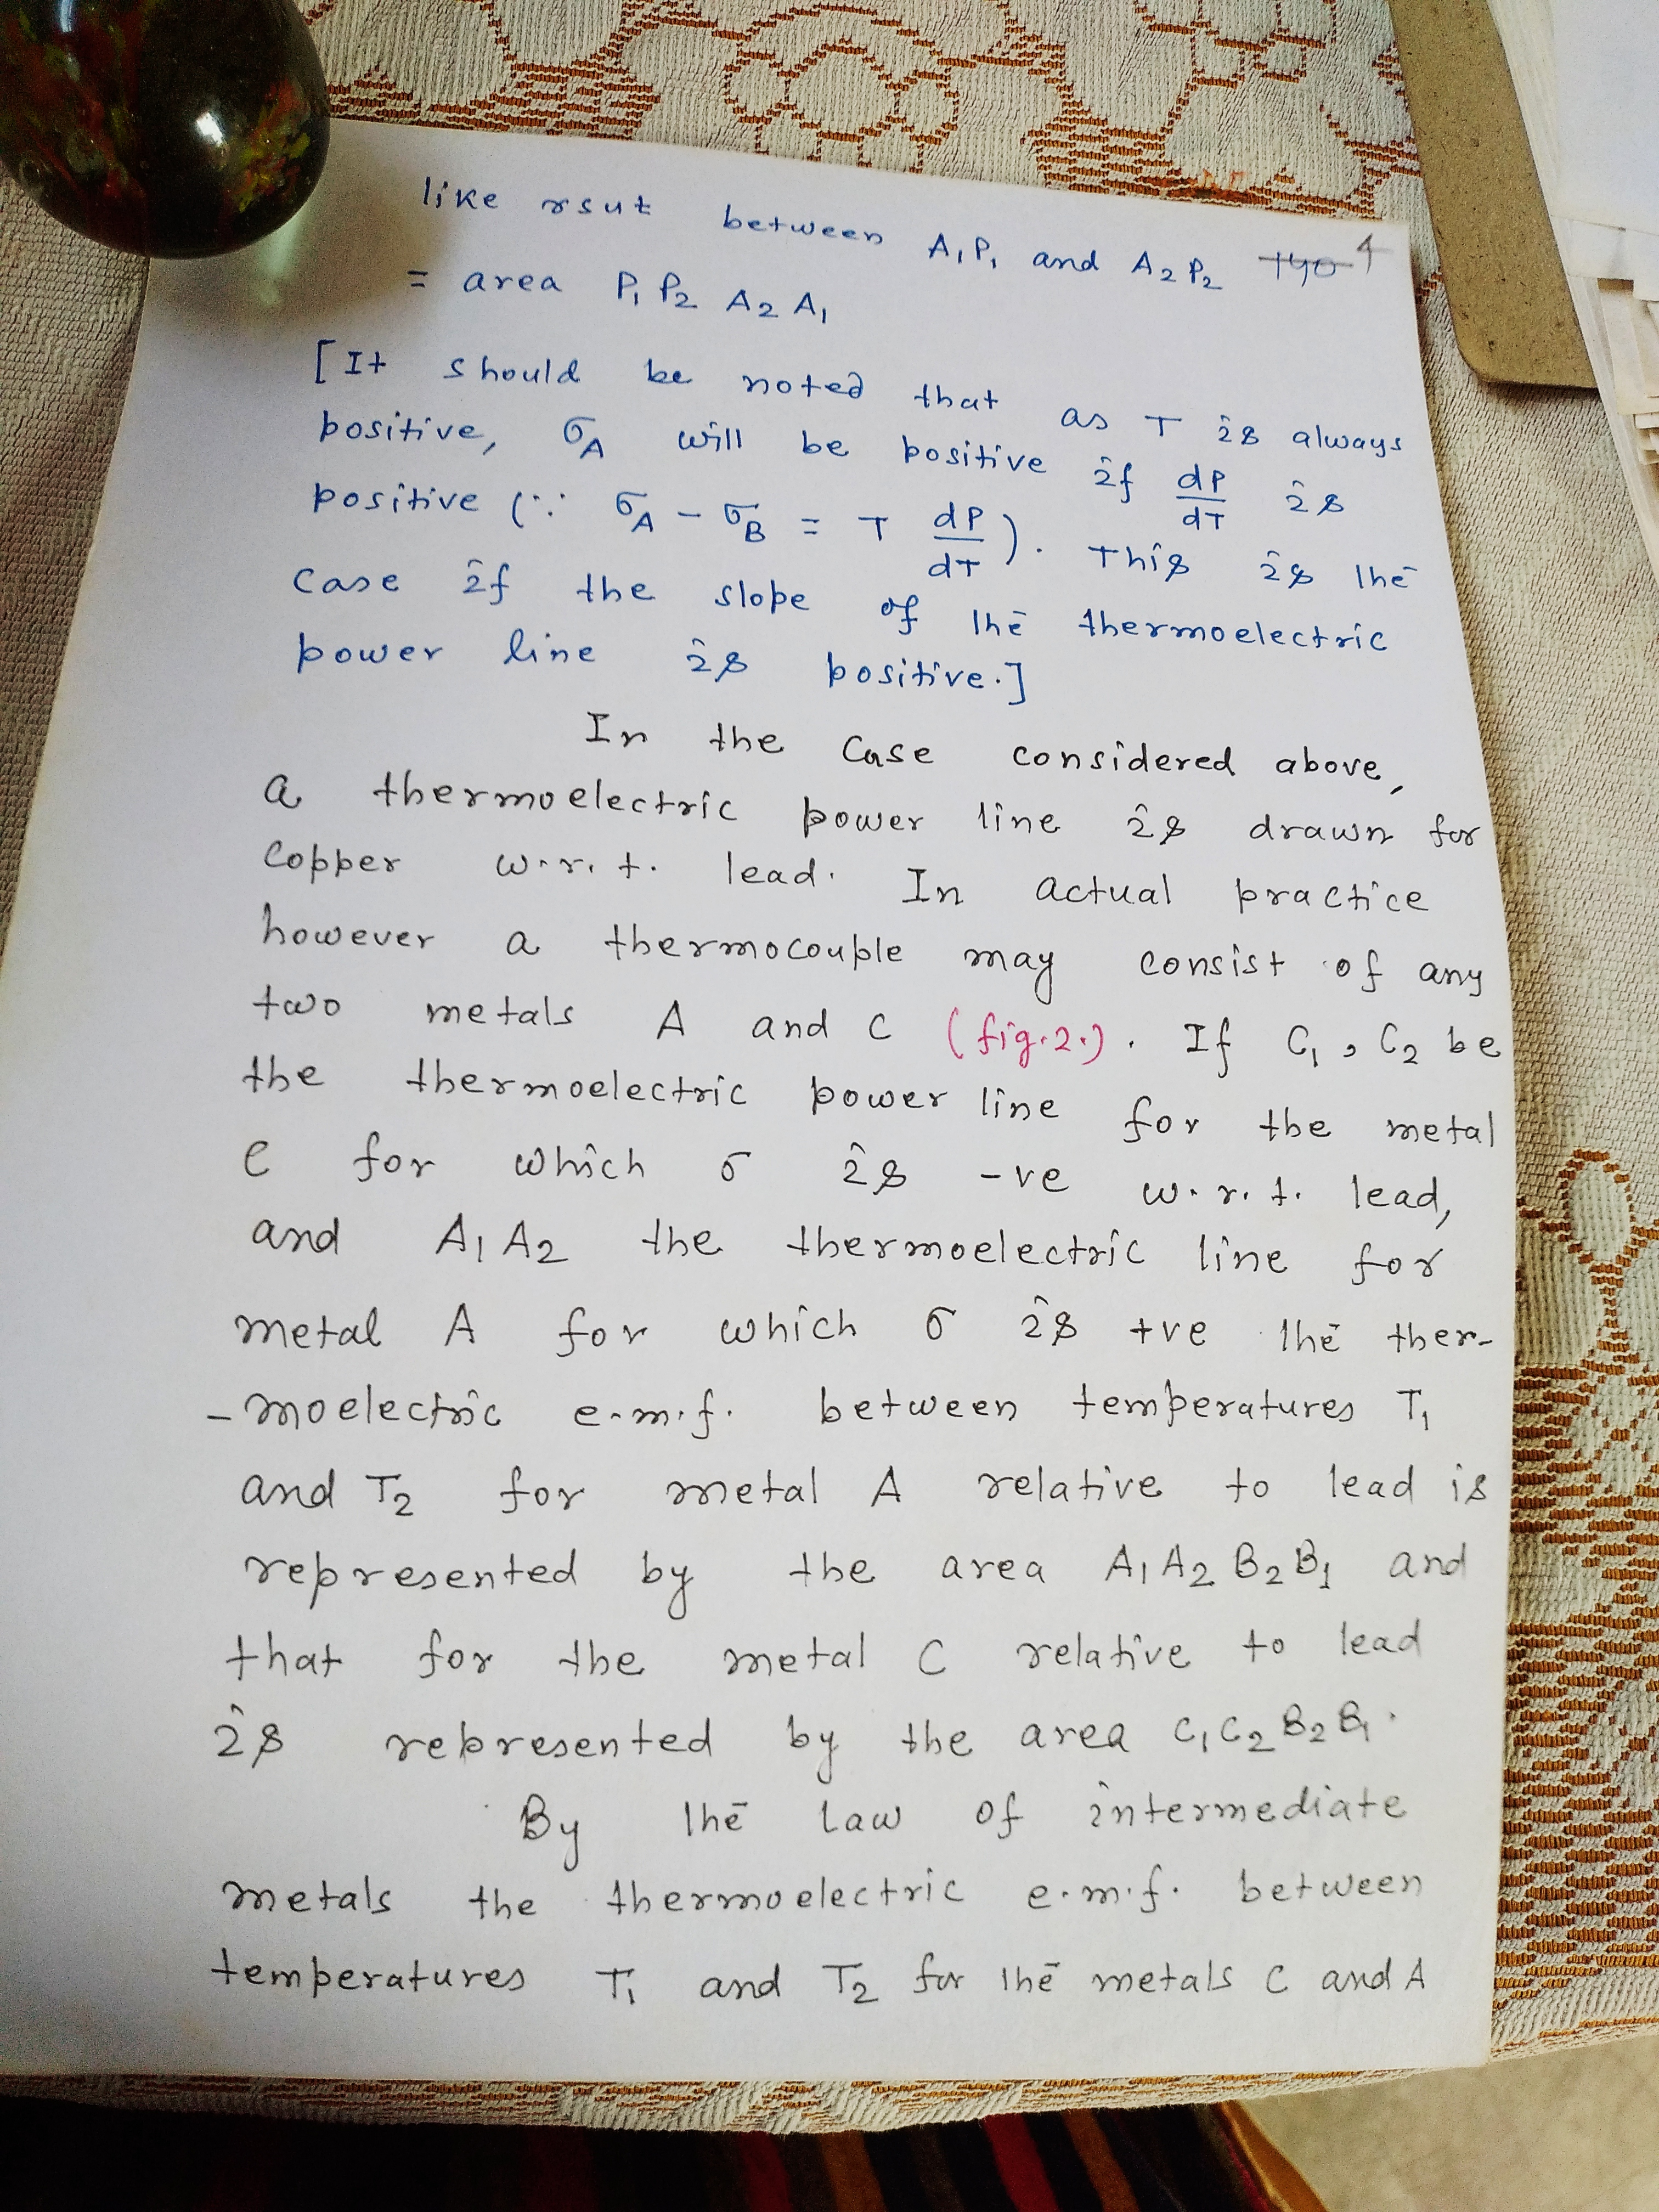 like rsut between A₁P₁ and A₂P₂ 4
= area P₁ P₂ A₂ A₁
[It should be noted that as T is always
positive, σ_A will be positive if dP/dT is
positive (∵ σ_A - σ_B = T dP/dT). This is the
case if the slope of the thermoelectric
power line is positive.]
In the case considered above,
a thermoelectric power line is drawn for
copper w.r.t. lead. In actual practice
however a thermocouple may consist of any
two metals A and C (fig.2.). If C₁, C₂ be
the thermoelectric power line for the metal
C for which σ is -ve w.r.t. lead,
and A₁ A₂ the thermoelectric line for
metal A for which σ is +ve the ther-
-moelectric e.m.f. between temperatures T₁
and T₂ for metal A relative to lead is
represented by the area A₁ A₂ B₂ B₁ and
that for the metal C relative to lead
is represented by the area C₁ C₂ B₂ B₁.
By the law of intermediate
metals the thermoelectric e.m.f. between
temperatures T₁ and T₂ for the metals C and A